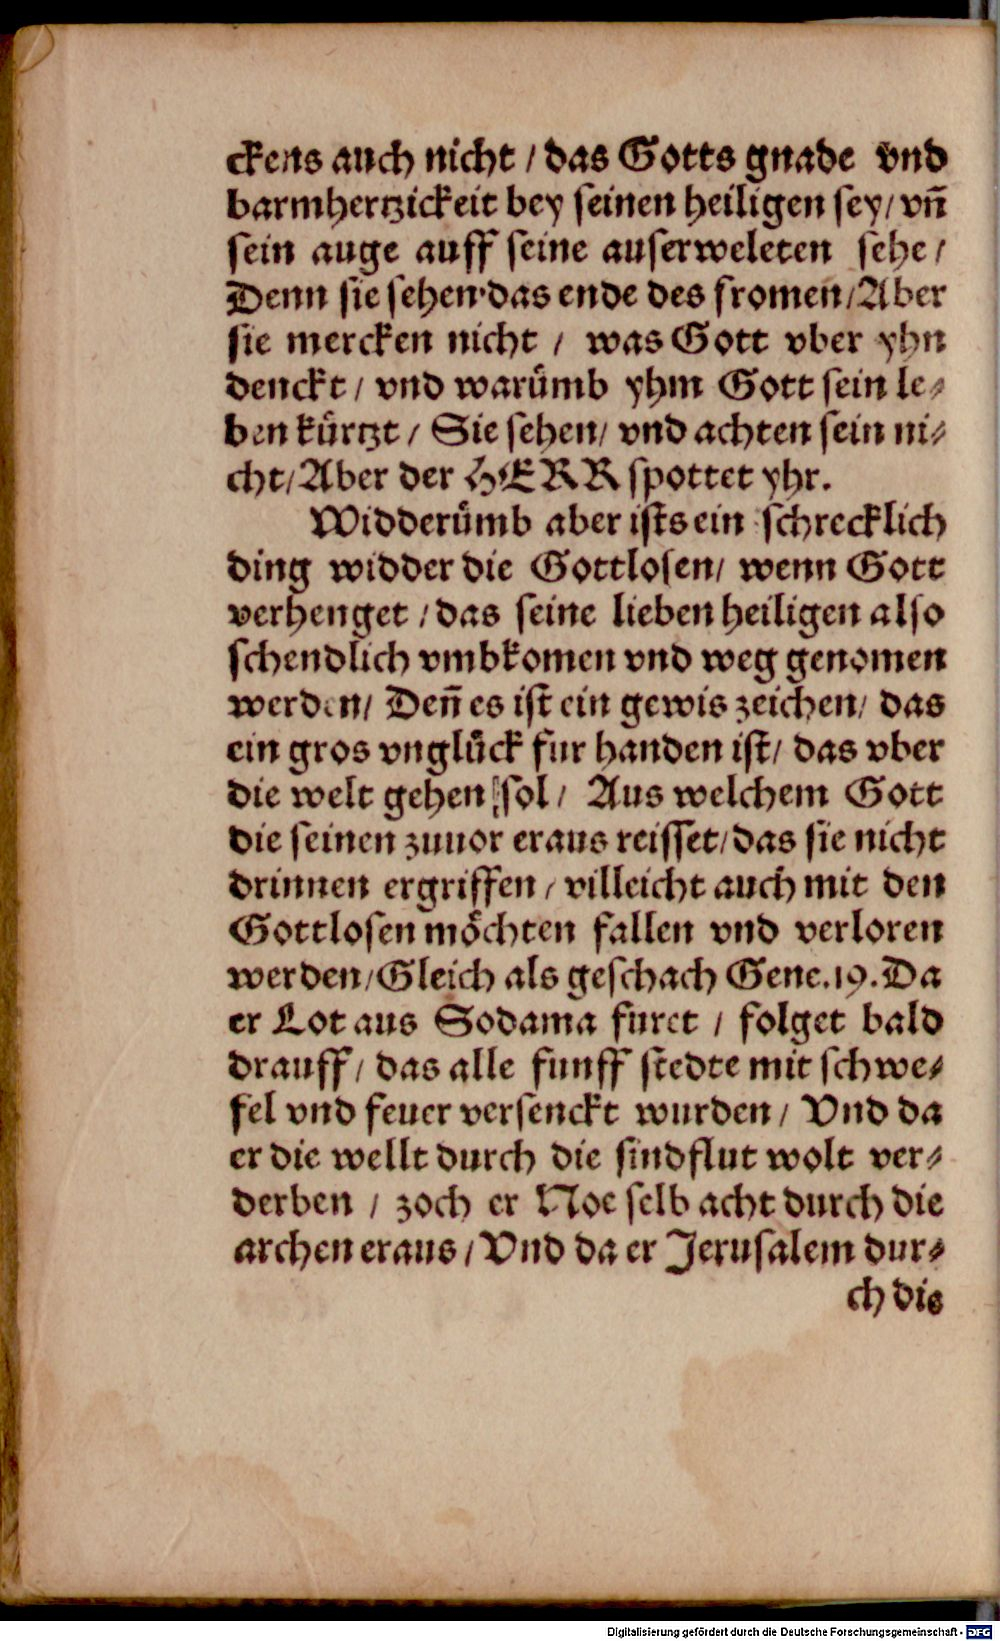 ckens auch nicht / das Gotts gnade vnd
barmhertzickeit bey seinen heiligen sey / vn̄
sein auge auff seine auserweleten sehe /
Denn sie sehen das ende des fromen / Aber
sie mercken nicht / was Gott vber yhn
denckt / vnd warumb yhm Gott sein le⸗
ben kürtzt / Sie sehen / vnd achten sein ni⸗
cht / Aber der HERR spottet yhr.
Widderümb aber ists ein schrecklich
ding widder die Gottlosen / wenn Gott
verhenget / das seine lieben heiligen also
schendlich vmbkomen vnd weg genomen
werden / Den̄ es ist ein gewis zeichen / das
ein gros vnglück fur handen ist / das vber
die welt gehen sol / Aus welchem Gott
die seinen zuuor eraus reisset / das sie nicht
drinnen ergriffen / villeicht auch mit den
Gottlosen möchten fallen vnd verloren
werden / Gleich als geschach Gene. 19. Da
er Lot aus Sodama furet / folget bald
drauff / das alle funff stedte mit schwe⸗
fel vnd feuer versenckt wurden / Vnd da
er die wellt durch die sindflut wolt ver⸗
derben / zoch er Noe selb acht durch die
archen eraus / Vnd da er Jerusalem dur⸗
ch die
Digitalisierung gefördert durch die Deutsche Forschungsgemeinschaft - DFG